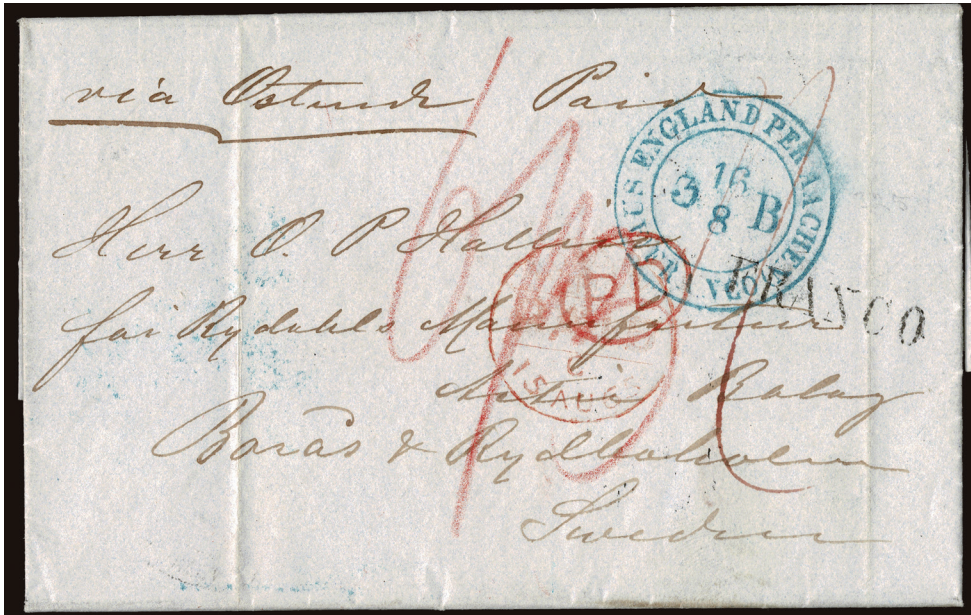 via Ostende Paid
AUS ENGLAND PER AACHEN
FRANCO
16
3 8 B
FRANCO
PD
15 AUG
Herr O. P. Hallin
för Rydahls Manufactur
Actie Bolag
Borås & Rydboholm
Sweden